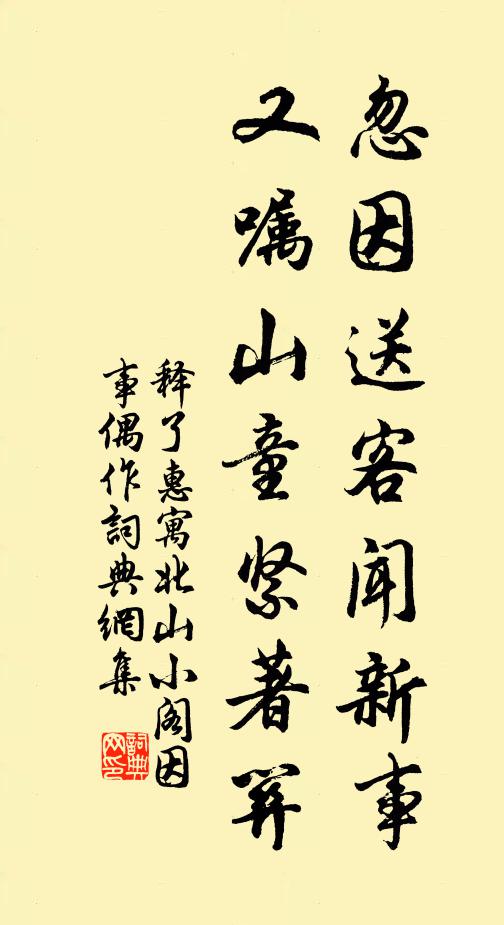 忽因送客闻新事
又嘱山童紧著関
释了惠寓北山小阁因
事偶作詞典網集
詞典
网印